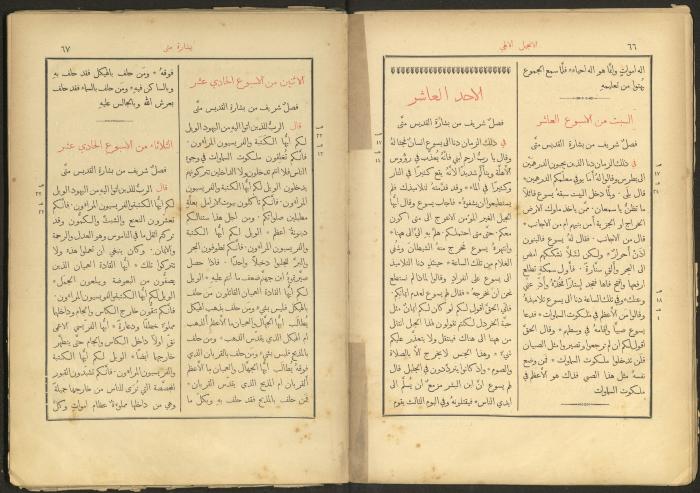 ٦٦
الانجيل الالهي
اله اموات وانما هو اله احياء * فلما سمع الجموع
بهتوا من تعليمه
السبت من الاسبوع العاشر
فصل شريف من بشارة القديس متى
في ذلك الزمان دنا الذين يجبون الدرهمين
الى بطرس وقالوا له أما يوفي معلمكم الدرهمين *
قال بلى * ولما دخل البيت سبقه يسوع قائلاً
ما تظن يا سمعان * ممن ياخذ ملوك الارض
الخراج او الجزية أمن بنيهم ام من الاجانب *
قال من الاجانب * قال له يسوع فالبنون
اذن احرار * ولكن لئلا نشككهم امض
الى البحر وألق سنارة * فأول سمكة تطلع
ارفعها وافتح فاها فتجد إستارا فخذه وأد عني
وعنك * وفي تلك الساعة دنا الى يسوع تلاميذه
وقالوا من الأعظم في ملكوت السماوات * فدعا
يسوع صبيا واقامه في وسطهم * وقال الحق
اقول لكم ان لم ترجعوا وتصيروا مثل الصبيان
فلن تدخلوا ملكوت السماوات * فمن وضع
نفسه مثل هذا الصبي فذاك هو الأعظم في
ملكوت السماوات
الاحد العاشر
فصل شريف من بشارة القديس متى
في ذلك الزمان دنا الى يسوع انسان فجثا له
وقال يا رب ارحم ابني فانه يعذب في رؤوس
الأهلة ويتألم شديدا لانه يقع كثيرا في النار
وكثيرا في الماء * وقد قدمته لتلاميذك فلم
يستطيعوا ان يشفوه * فاجاب يسوع وقال ايها
الجيل الغير المؤمن الاعوج الى متى اكون
معكم * حتى متى احتملكم * هلم به الي الى ههنا *
وانتهره يسوع فخرج منه الشيطان وشفي
الغلام من تلك الساعة * حينئذ دنا التلاميذ
الى يسوع على انفراد وقالوا لماذا لم نستطع
نحن ان نخرجه * فقال لهم يسوع لعدم ايمانكم *
فاني الحق اقول لكم لو كان لكم ايمان مثل
حبة الخردل لكنتم تقولون لهذا الجبل انتقل
من ههنا الى هناك فينتقل ولا يتعذر عليكم
شيء * وهذا الجنس لا يخرج الا بالصلاة
والصوم * واذ كانوا يترددون في الجليل قال
لهم يسوع ان ابن البشر مزمع ان يسلم الى
ايدي الناس * فيقتلونه وفي اليوم الثالث يقوم
بشارة متى
٦٧
الاثنين من الاسبوع الحادي عشر
فصل شريف من بشارة القديس متى
قال الرب للذين أتوا اليه من اليهود الويل
لكم ايها الكتبة والفريسيون المراؤون *
فانكم تغلقون ملكوت السماوات في وجوه
الناس فلا انتم تدخلون ولا الداخلين تتركونهم
يدخلون الويل لكم ايها الكتبة والفريسيون
المراؤون * فانكم تأكلون بيوت الارامل بعلة
مطيلين صلواتكم * ومن اجل هذا ستنالكم
دينونة اعظم * الويل لكم ايها الكتبة
والفريسيون المراؤون * فانكم تطوفون البحر
والبر لتجعلوا دخيلاً واحدًا * فاذا حصل
صيرتموه ابن جهنم ضعف ما انتم عليه * الويل
لكم ايها القادة العميان القائلون من حلف
بالهيكل فليس بشيء * ومن حلف بذهب الهيكل
يطالب * ايها الجهال والعميان ما الأعظم ألذهب
ام الهيكل الذي يقدس الذهب * ومن حلف
بالمذبح فليس بشيء * ومن حلف بالقربان الذي
فوقه يطالب * ايها الجهال والعميان ما الأعظم
ألقربان ام المذبح الذي يقدس القربان *
فمن حلف بالمذبح فقد حلف به وبكل ما
فوقه * ومن حلف بالهيكل فقد حلف به
وبالساكن فيه * ومن حلف بالسماء فقد حلف
بعرش الله وبالجالس عليه
الثلاثاء من الاسبوع الحادي عشر
فصل شريف من بشارة القديس متى
قال الرب للذين أتوا اليه من اليهود الويل
لكم ايها الكتبة والفريسيون المراؤون * فانكم
تعشرون النعنع والشبث والكمون وقد
تركتم أثقل ما في الناموس وهو العدل والرحمة
والايمان * وكان ينبغي ان تعملوا هذه ولا
تتركوا تلك * ايها القادة العميان الذين
يصفون من البعوضة ويبلعون الجمل *
الويل لكم ايها الكتبة والفريسيون المراؤون *
فانكم تنقون خارج الكاس والجام وداخلها
مملوء خطفا ودعارة * ايها الفريسي الاعمى
نق اولاً داخل الكاس والجام حتى يتطهر
خارجهما ايضا * الويل لكم ايها الكتبة
والفريسيون المراؤون * فانكم تشبهون القبور
المجصصة التي ترى للناس من خارجها جميلة
وهي من داخلها مملوءة عظام اموات وكل